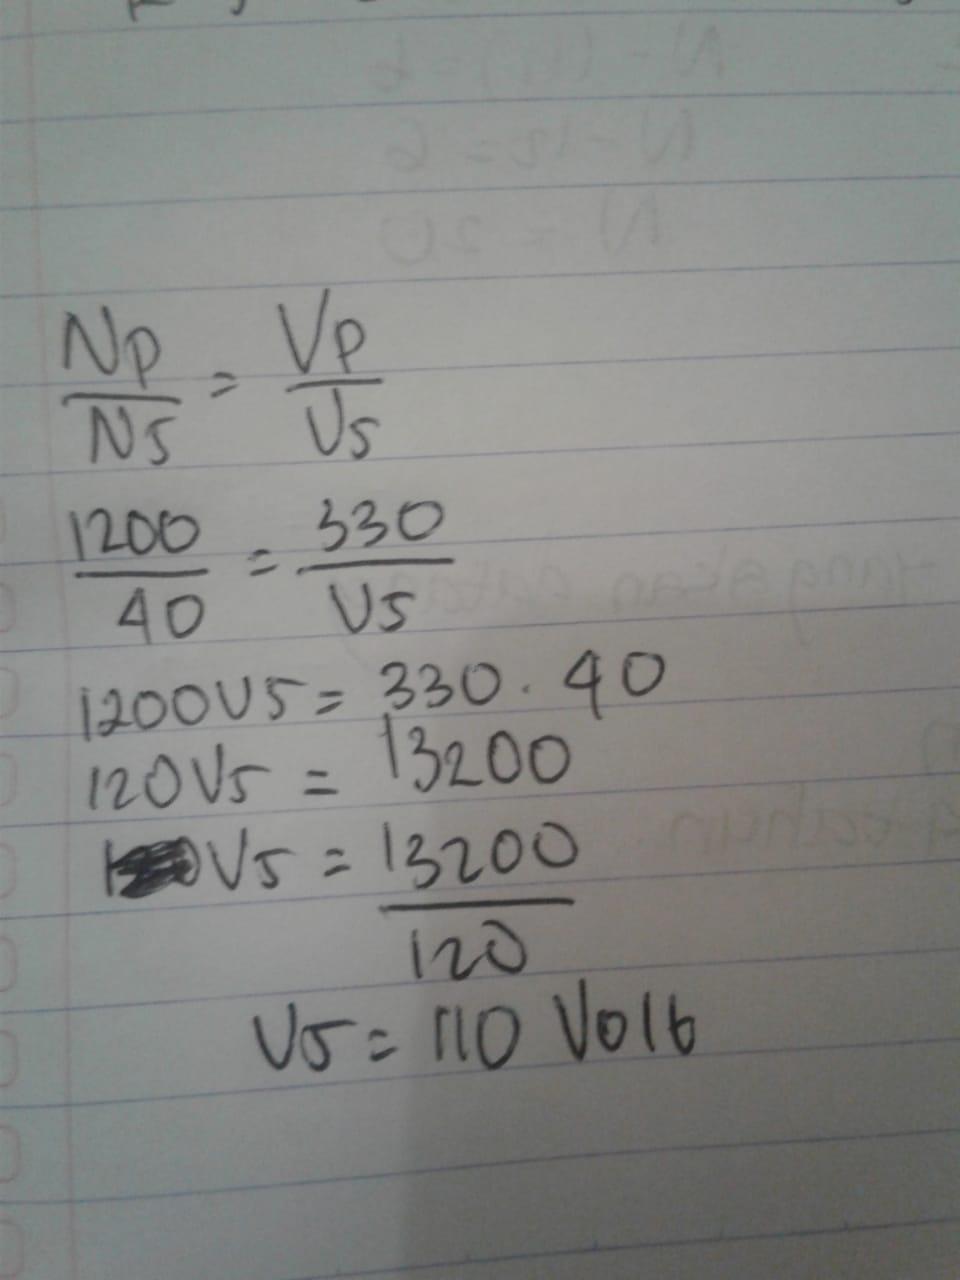 Np/Ns = Vp/Vs
1200/40 = 330/Vs
1200Vs = 330 . 40
120Vs = 13200
Vs = 13200/120
Vs = 110 Volt